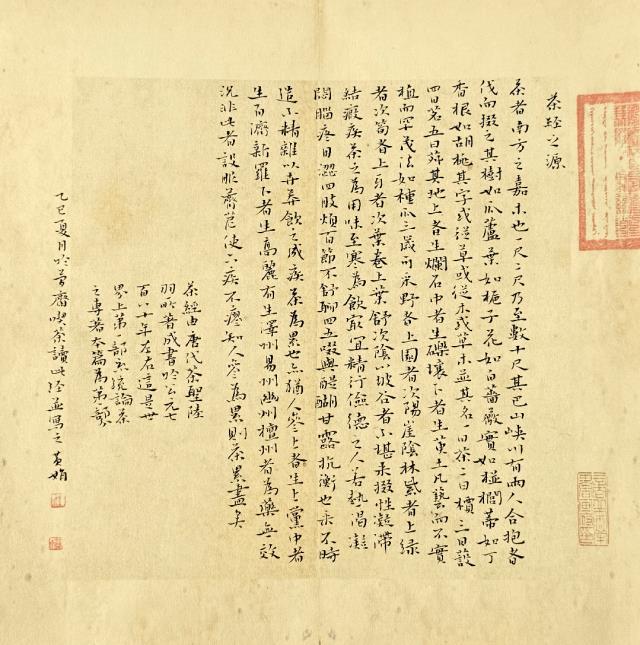 茶經之源
茶者南方之嘉木也一尺二尺乃至數十尺其巴山峽川有兩人合抱者
伐而掇之其樹如瓜蘆葉如梔子花如白薔薇實如栟櫚蒂如丁
香根如胡桃其字或從草或從木或草木並其名一曰茶二曰檟三曰蔎
四曰茗五曰荈其地上者生爛石中者生礫壤下者生黃土凡藝而不實
植而罕茂法如種瓜三歲可采野者上園者次陽崖陰林紫者上綠
者次筍者上牙者次葉卷上葉舒次陰山坡谷者不堪采掇性凝滯
結瘕疾茶之為用味至寒為飲最宜精行儉德之人若熱渴凝
悶腦疼目澀四肢煩百節不舒聊四五啜與醍醐甘露抗衡也采不時
造不精雜以卉莽飲之成疾茶為累也亦猶人參上者生上黨中者
生百濟新羅下者生高麗有生澤州易州幽州檀州者為藥無效
況非此者設服薺苨使六疾不瘳知人參為累則茶累盡矣
茶經由唐代茶聖陸
羽所著成書於公元七
百八十年左右這是世
界上第一部系統論茶
之專著本篇為第一
乙巳夏月於喫茶讀此經並寫之